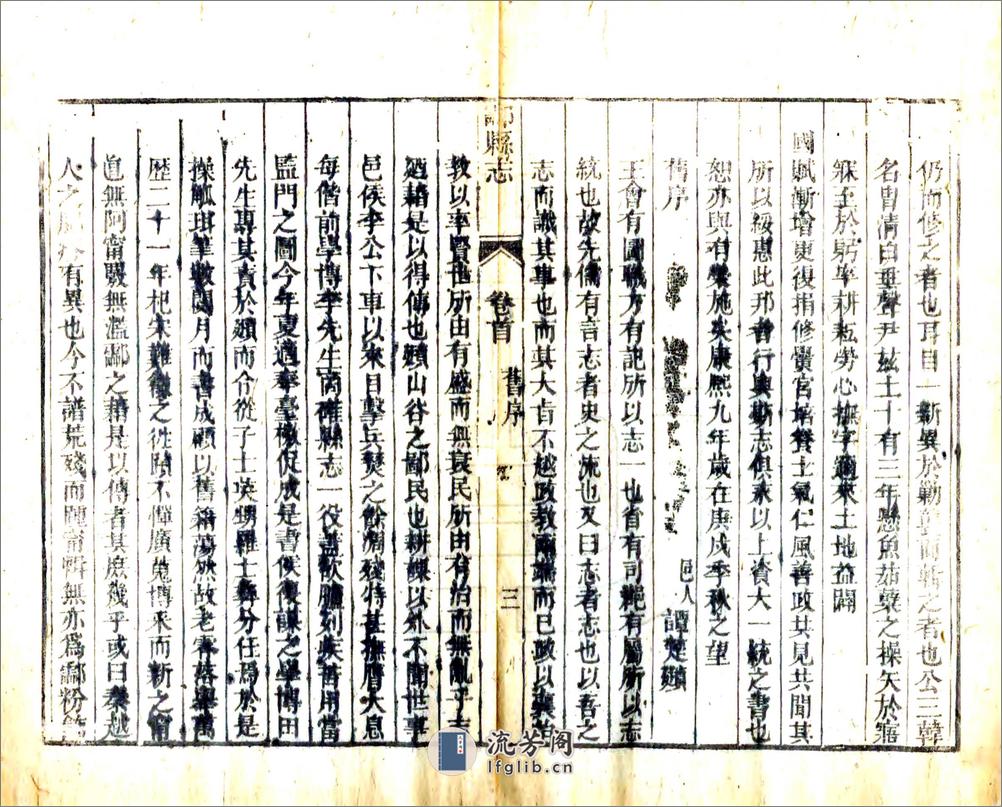 仍而修之者也耳目一新異於勦襲而新之者也公三韓
名胄清白垂聲尹兹土十有三年懸魚茹蘗之操矢於寤
寐至於躬率耕耘勞心撫字邇來土地益闢
國賦漸增更復捐修黌宮培養士氣仁風善政共見共聞其
所以綏惠此邦者行與斯志俱永以上資大一統之書也
恕亦與有榮施矣康熙九年歲在庚戌季秋之望
舊序
邑人 譚楚
王會有圖職方有記所以志一也省有司範有屬所以志
統也故先儒有言志者史之流也又曰志者志也以吾之
志而識其事也而其大旨不越政教兩端而已政以襄治
酃縣志
卷首
舊序
三
教以率賢世所由有盛而無衰民所由有治而無亂乎志
迺藉是以得傳也 山谷之鄙民也耕讀以外不聞世事
邑侯李公下車以來目擊兵燹之餘凋殘特甚撫膺大息
每偕前學博李先生商確縣志一役 歃膽刻 當
監門之圖今年夏適奉臺檄促成是書侯復謀之學博田
先生專其責於 而介從子士英甥羅士彝分任焉於是
操觚珥筆數閱月而書成顧以舊籍蕩然故老零落與萬
歷二十一年杞宋難徵之往蹟不憚廣蒐博采而新之甯
直無阿甯覈無濫酃之藉是以傳者其庶幾乎或曰秦越
人之 有異也今不譜荒殘而 無亦爲酃粉飾
流芳阁
lfglib.cn